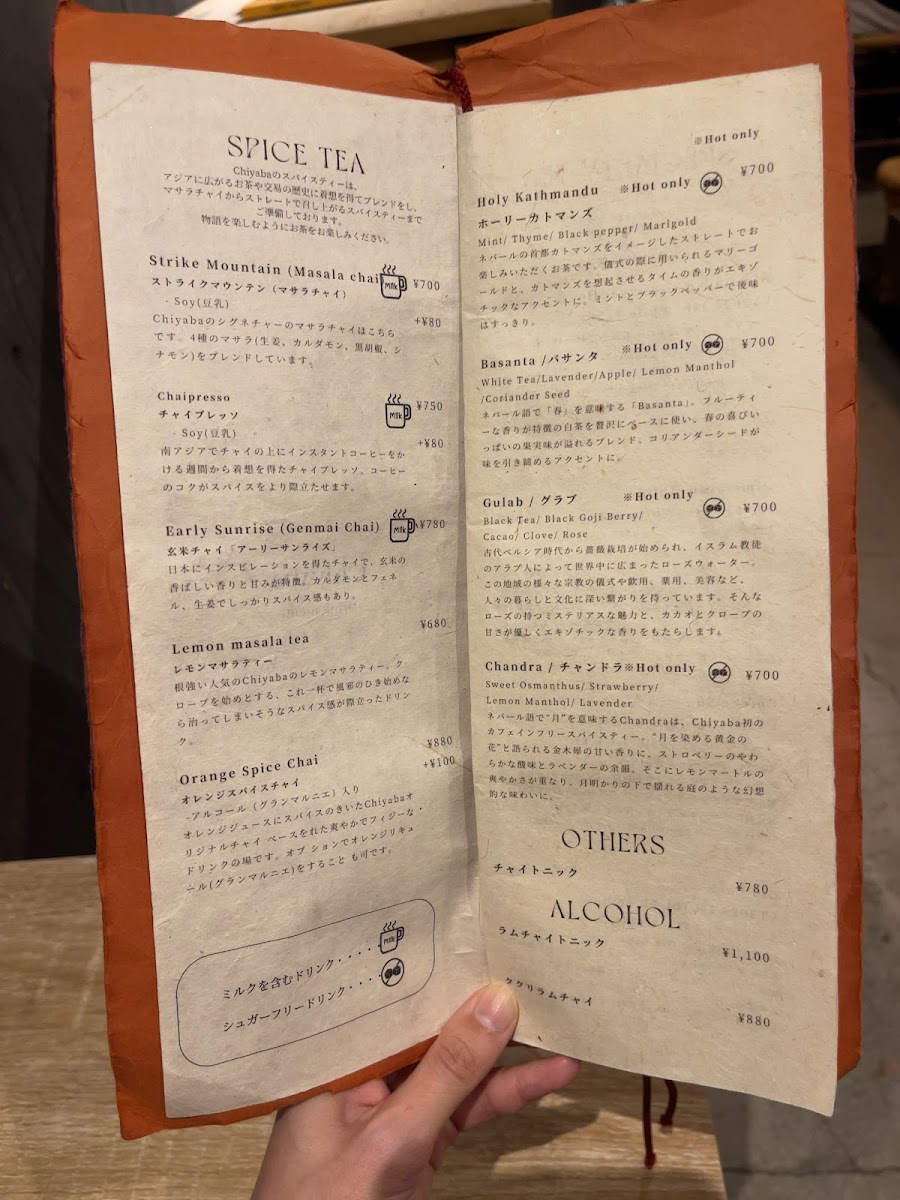 SPICE TEA
Chiyabaのスパイスティーは、
アジアに広がるお茶や交易の歴史に着想を得てブレンドをし、
マサラチャイからストレートで召し上がるスパイスティーまで
ご準備しております。
物語を楽しむようにお茶をお楽しみください。
Strike Mountain (Masala chai
Milk
¥700
ストライクマウンテン（マサラチャイ）
- Soy(豆乳)
+¥80
Chiyabaのシグネチャーのマサラチャイはこちら
です。4種のマサラ(生姜、カルダモン、黒胡椒、シ
ナモン)をブレンドしています。
Chaipresso
Milk
¥750
チャイプレッソ
- Soy(豆乳)
+¥80
南アジアでチャイの上にインスタントコーヒーをか
ける週間から着想を得たチャイプレッソ。コーヒー
のコクがスパイスをより際立たせます。
Early Sunrise (Genmai Chai)
Milk
¥780
玄米チャイ「アーリーサンライズ」
日本にインスピレーションを得たチャイで、玄米の
香ばしい香りと甘みが特徴。カルダモンとフェネ
ル、生姜でしっかりスパイス感もあり。
¥680
Lemon masala tea
レモンマサラティー
根強い人気のChiyabaのレモンマサラティー。ク
ローブを始めとする、これ一杯で風邪のひき始めな
ら治ってしまいそうなスパイス感が際立ったドリン
ク。
¥880
Orange Spice Chai
+¥100
オレンジスパイスチャイ
-アルコール（グランマルニエ）入り
オレンジジュースにスパイスのきいたChiyabaオ
リジナルチャイ ベースをれた爽やかでフィジーな・
ドリンクの場です。オプ ションでオレンジリキュ
ール(グランマルニエ)をすること も可です。
ミルクを含むドリンク・・・・・
Milk
シュガーフリードリンク・・・・
※Hot only
Holy Kathmandu ※Hot only
¥700
ホーリーカトマンズ
Mint/ Thyme/ Black pepper/ Marigold
ネパールの首都カトマンズをイメージしたストレートでお
楽しみいただくお茶です。儀式の際に用いられるマリーゴ
ールドと、カトマンズを想起させるタイムの香りがエキゾ
チックなアクセントに。ミントとブラックペッパーで後味
はすっきり。
Basanta /バサンタ ※Hot only
¥700
White Tea/Lavender/Apple/ Lemon Manthol
/Coriander Seed
ネパール語で「春」を意味する「Basanta」。フルーティ
ーな香りが特徴の白茶を贅沢にベースに使い、春の喜びい
っぱいの果実味が溢れるブレンド。コリアンダーシードが
味を引き締めるアクセントに。
Gulab / グラブ ※Hot only
¥700
Black Tea/ Black Goji Berry/
Cacao/ Clove/ Rose
古代ペルシア時代から薔薇栽培が始められ、イスラム教徒
のアラブ人によって世界中に広まったローズウォーター。
この地域の様々な宗教の儀式や飲用、薬用、美容など、
人々の暮らしと文化に深い繋がりを持っています。そんな
ローズの持つミステリアスな魅力と、カカオとクローブの
甘さが優しくエキゾチックな香りをもたらします。
Chandra / チャンドラ※Hot only
¥700
Sweet Osmanthus/ Strawberry/
Lemon Manthol/ Lavender
ネパール語で“月”を意味するChandraは、Chiyaba初の
カフェインフリースパイスティー。“月を染める黄金の
花”と語られる金木犀の甘い香りに、ストロベリーのやわ
らかな酸味とラベンダーの余韻。そこにレモンマートルの
爽やかさが重なり、月明かりの下で揺れる庭のような幻想
的な味わいに。
OTHERS
チャイトニック
¥780
ALCOHOL
ラムチャイトニック
¥1,100
ククリラムチャイ
¥880